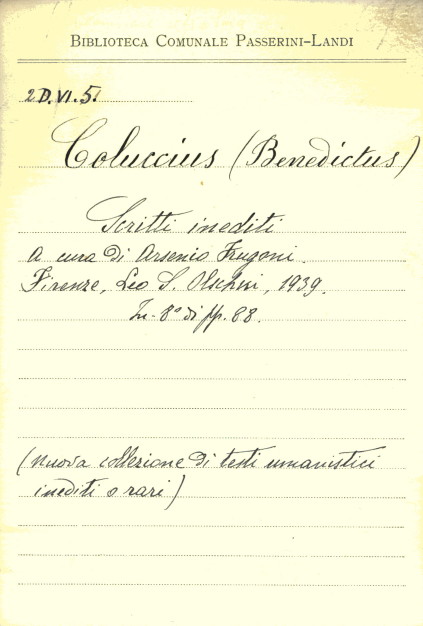 BIBLIOTECA COMUNALE PASSERINI-LANDI
2D.VI.5.
Coluccius (Benedictus)
Scritti inediti
A cura di Arsenio Frugoni.
Firenze, Leo S. Olschki, 1939.
In-8° di pp. 88.
(Nuova collezione di testi umanistici
inediti o rari)